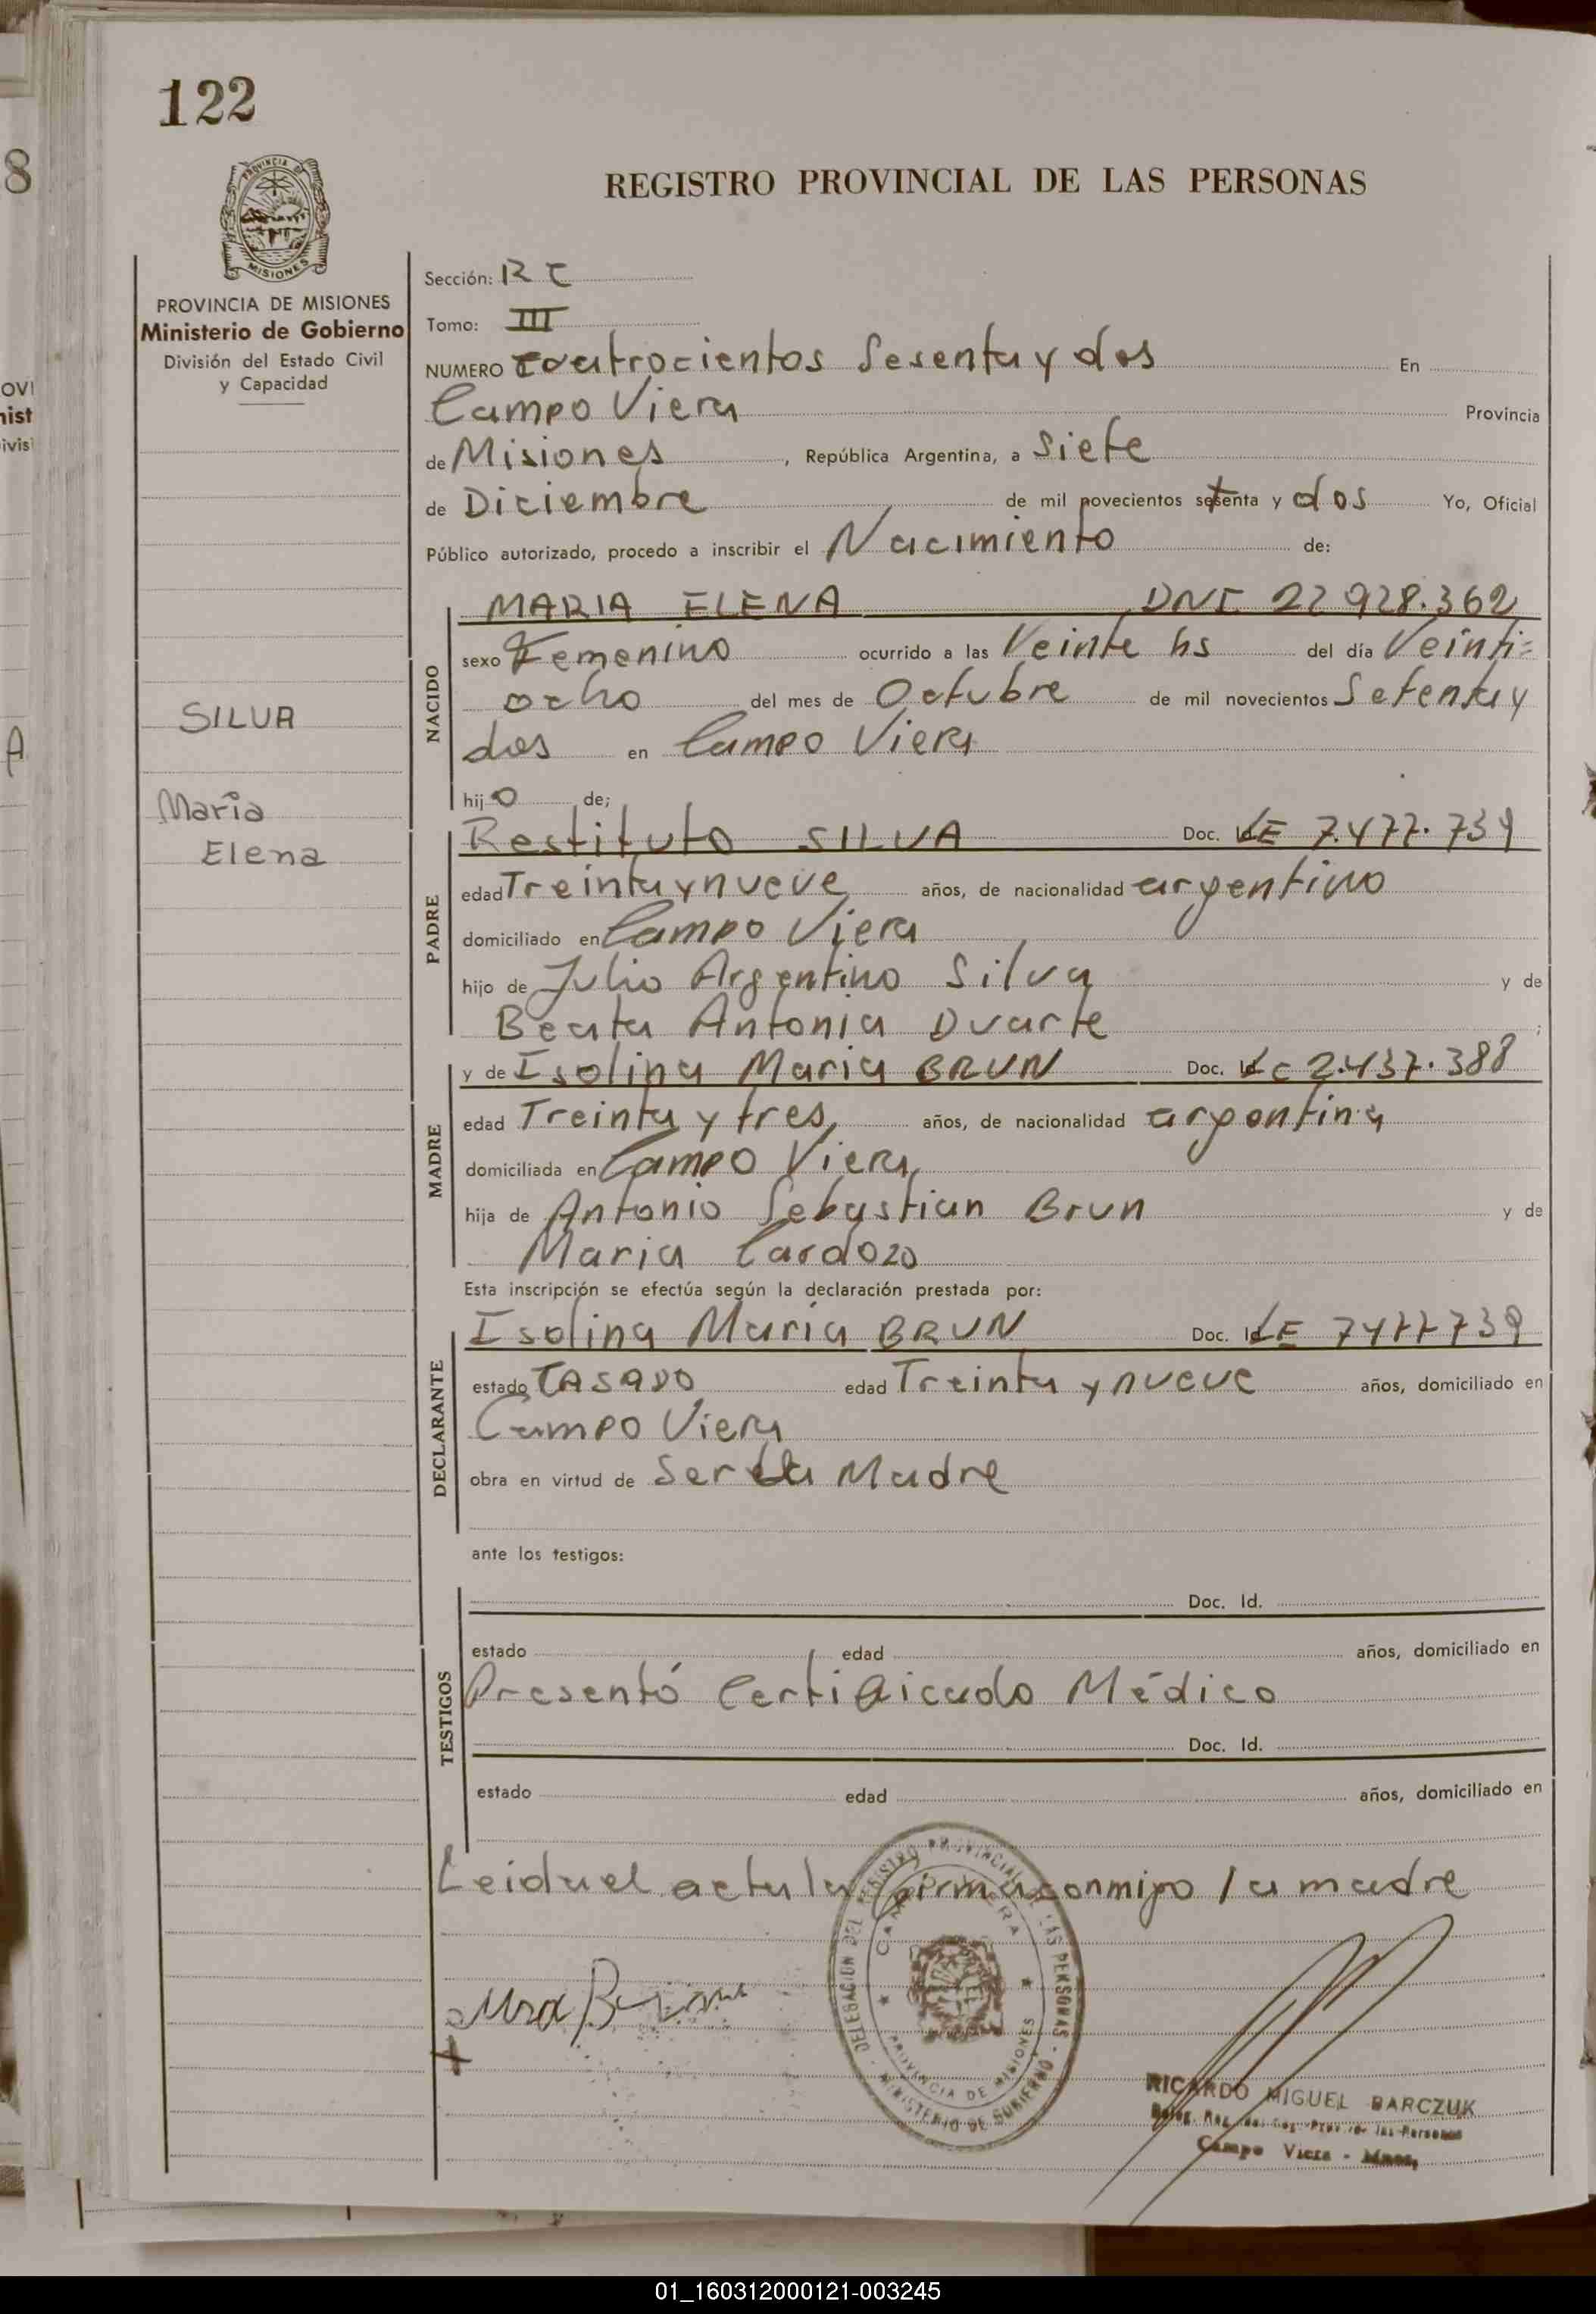 122
8
PROVINCIA DE MISIONES
PROVINCIA DE MISIONES
Ministerio de Gobierno
División del Estado Civil
y Capacidad
SILVA
Maria
Elena
REGISTRO PROVINCIAL DE LAS PERSONAS
Sección: RC
Tomo: III
NUMERO cuatrocientos Sesenta y dos En
Campo Viera Provincia
de Misiones, República Argentina, a Siete
de Diciembre de mil novecientos setenta y dos Yo, Oficial
Público autorizado, procedo a inscribir el Nacimiento de:
NACIDO
MARIA ELENA DNI 22 928.362
sexo Femenino ocurrido a las Veinte hs del día Veinti=
ocho del mes de Octubre de mil novecientos Setenta y
dos en Campo Viera
hijo de;
PADRE
Restituto SILVA Doc. LE 7.477.739
edad Treinta y nueve años, de nacionalidad argentino
domiciliado en Campo Viera
hijo de Julio Argentino Silva y de
Beata Antonia Duarte ;
MADRE
y de Isolina Maria BRUN Doc. Id. LC 2.437.388
edad Treinta y tres años, de nacionalidad argentina
domiciliada en Campo Viera
hija de Antonio Sebastian Brun y de
Maria Cardozo
Esta inscripción se efectúa según la declaración prestada por:
DECLARANTE
Isolina María BRUN Doc. Id. LE 7477739
estado CASADO edad Treinta y nueve años, domiciliado en
Campo Viera
obra en virtud de Ser la Madre
ante los testigos:
TESTIGOS
Doc. Id.
estado edad años, domiciliado en
Presentó Certificado Médico
Doc. Id.
estado edad años, domiciliado en
Leida el acta la firma conmigo la madre
DELEGACION DEL REGISTRO PROVINCIAL DE LAS PERSONAS - MINISTERIO DE GOBIERNO -
CAMPO VIERA ★ PROVINCIA DE MISIONES ★
RICARDO MIGUEL BARCZUK
las Personas
Campo Viera - Mnes.
01_160312000121-003245